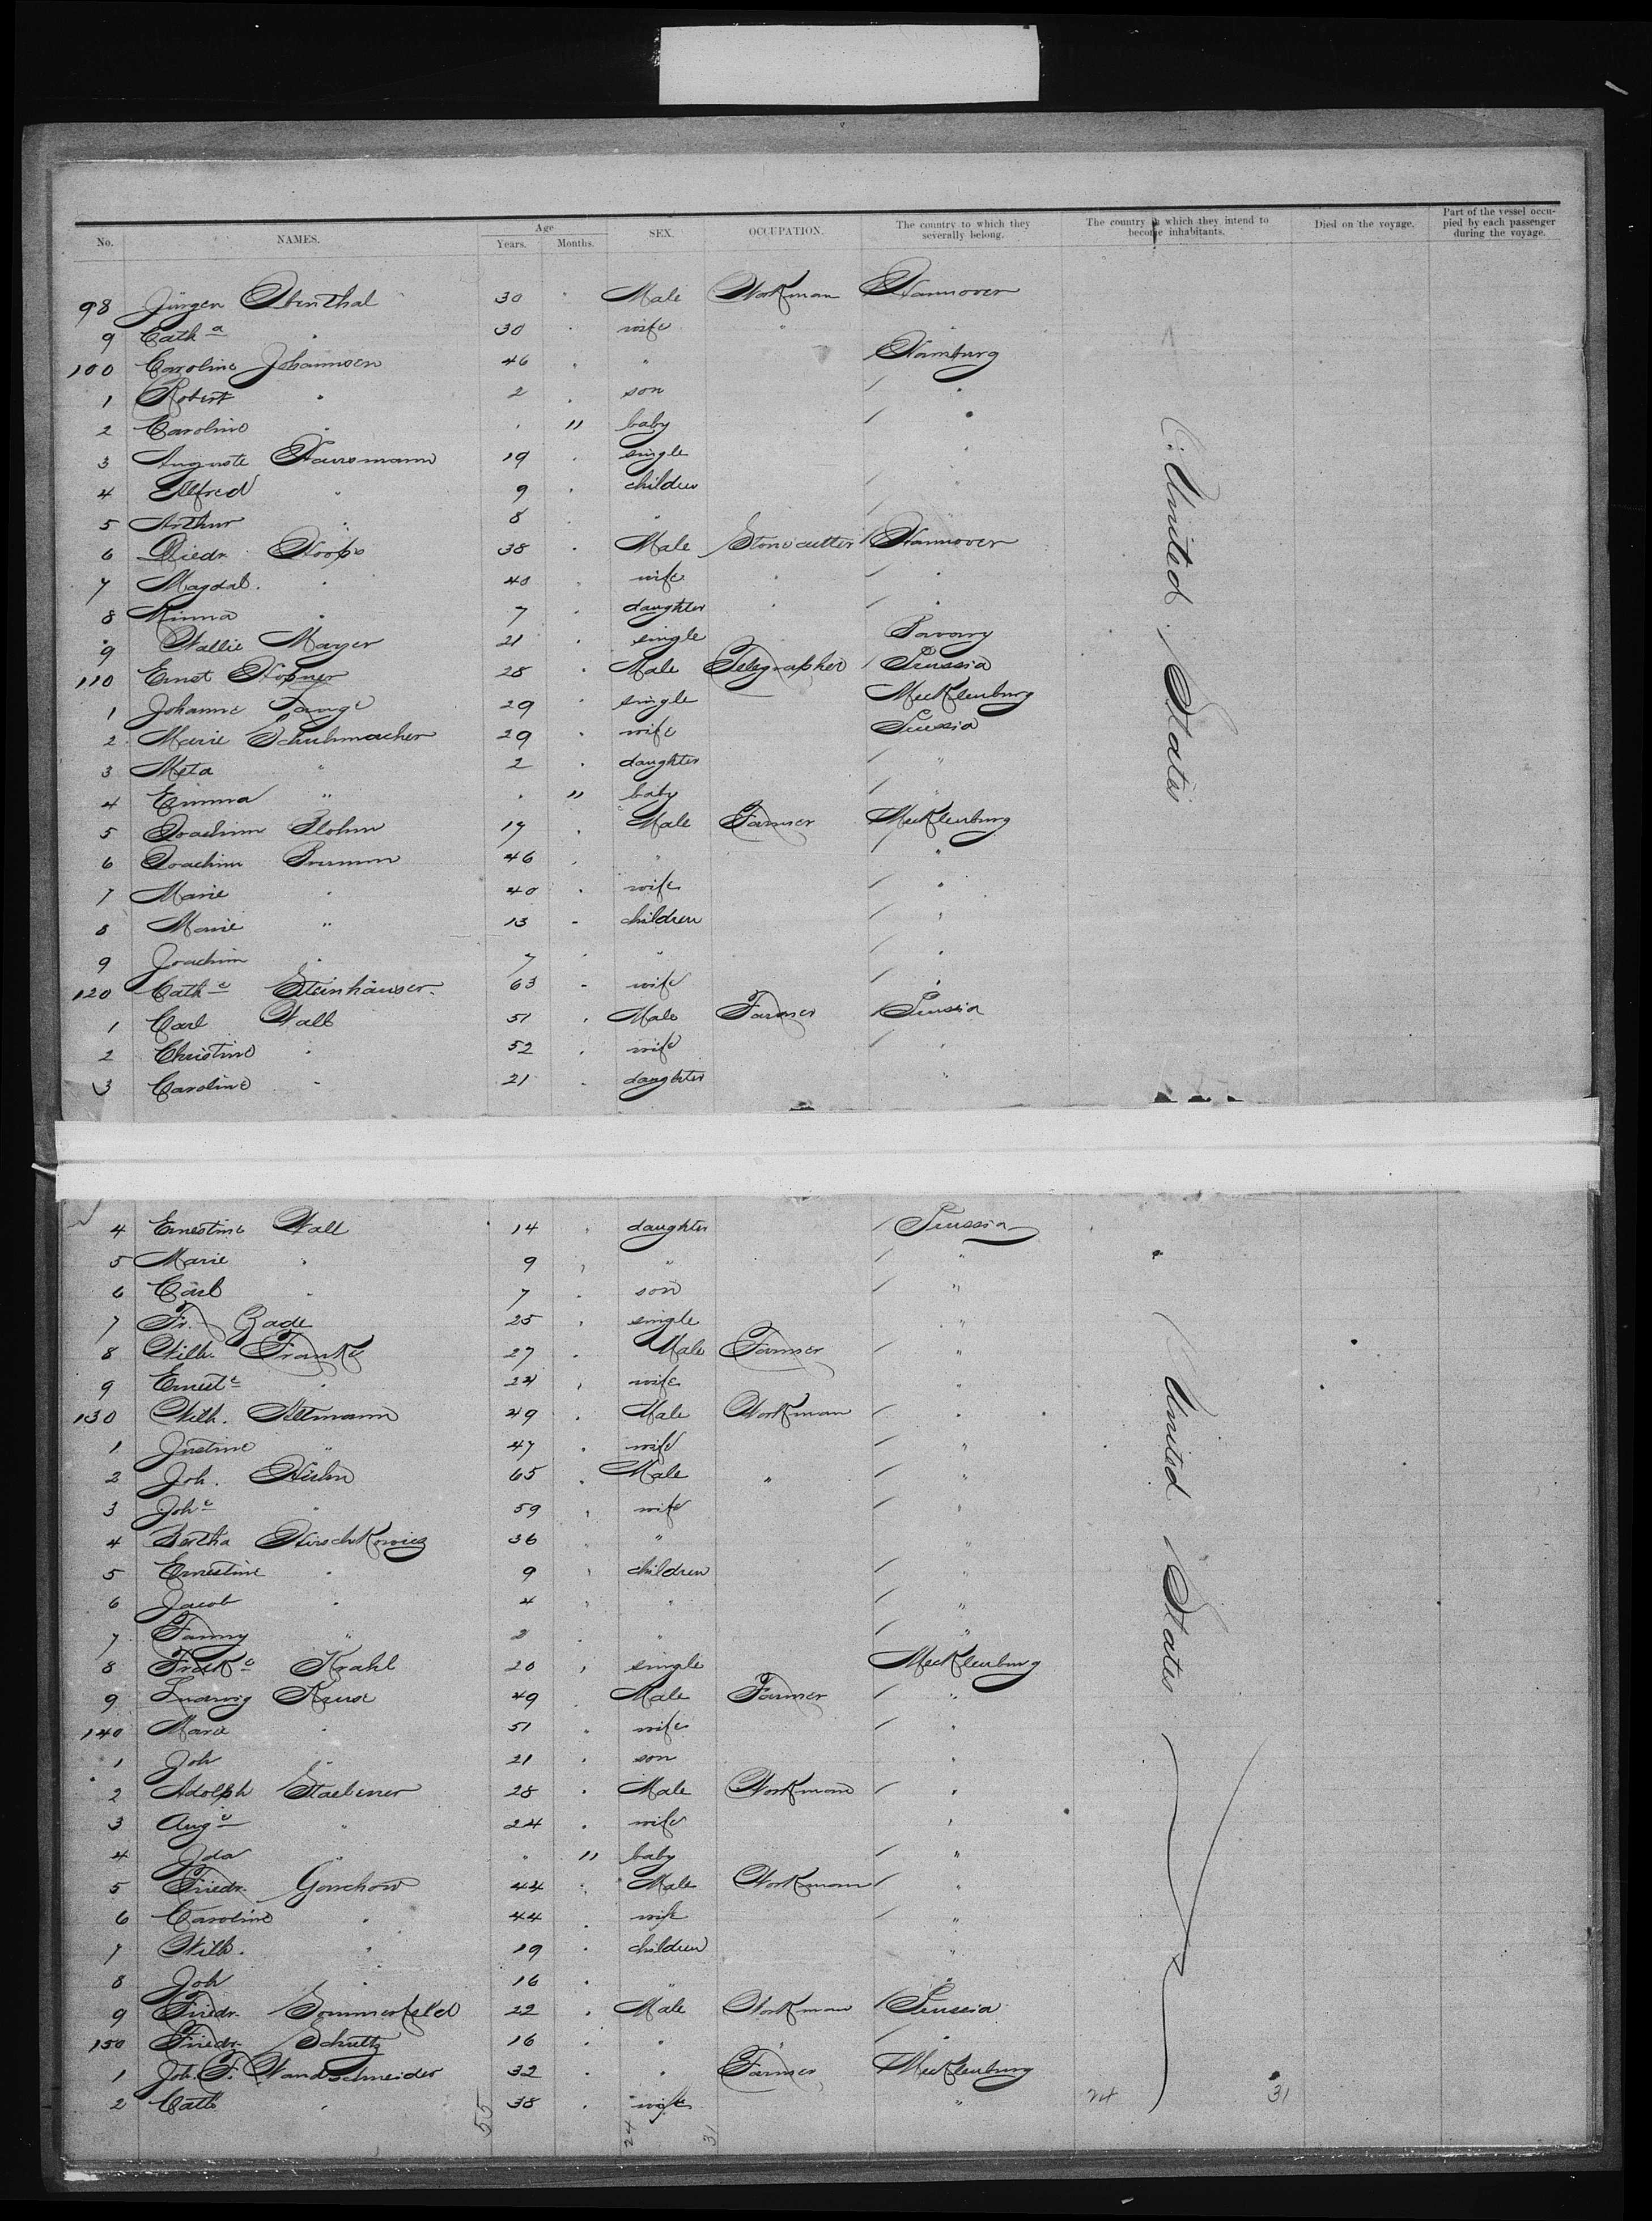 No. NAMES. Age Years. Months. SEX. OCCUPATION. The country to which they severally belong. The country in which they intend to become inhabitants. Died on the voyage. Part of the vessel occupied by each passenger during the voyage.
98 Jürgen 30 Male Workman Hannover
9 Cath a " 30 wife "
100 Caroline Johannsen 46 " Hamburg
1 Robert " 2 son "
2 Caroline " 11 baby "
3 Auguste Hausmann 19 single "
4 Alfred " 9 children "
5 Arthur " 8 " "
6 Diedr. Hoops 38 Male Stonecutter Hannover
7 Magdal. " 40 wife " "
8 Minna " 7 daughter " "
9 Wallie Mayer 21 single
110 Ernst Höpner 28 Male Telegrapher Prussia
1 Johanne Lange 29 single Mecklenburg
2 Marie Schuhmacher 29 wife Prussia
3 Meta " 2 daughter "
4 Emma " 11 baby "
5 Joachim 19 Male Farmer Mecklenburg
6 Joachim Brumm 46 " "
7 Marie " 40 wife "
8 Marie " 13 children "
9 Joachim " 7 " "
120 Cath e Steinhäuser. 63 wife "
1 Carl Wall 51 Male Farmer Prussia
2 Christine " 52 wife "
3 Caroline " 21 daughter "
United States
4 Ernestine Wall 14 daughter Prussia "
5 Marie " 9 " "
6 Carl " 7 son "
7 Fr. Gade 25 single "
8 Wilh. Franke 27 Male Farmer "
9 Ernest e " 24 wife "
130 Wilh. Altmann 49 Male Workman "
1 Justine " 47 wife "
2 Joh. 65 Male " "
3 Joh e " 59 wife "
4 Bertha Hirschkowicz 36 " "
5 Ernestine " 9 children "
6 Jacob " 4 " "
7 Fanny " 2 " "
8 Fredk e Krahl 20 single Mecklenburg
9 Ludwig Kruse 49 Male Farmer "
140 " 51 wife "
1 Joh " 21 son "
2 Adolph Staebener 28 Male Workman "
3 Aug e " 24 wife "
4 Ida " 11 baby "
5 Friedr. Garchow 44 Male Workman "
6 Caroline " 44 wife "
7 Wilh. " 19 children "
8 Joh " 16 " "
9 Friedr. Sommerfeld 22 Male Workman Prussia
150 Friedr. Schultz 16 " " "
1 Joh. F. Wandschneider 32 " Farmer Mecklenburg
2 Cath " 38 wife "
United States
55 24 31 24 31